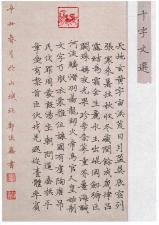 千字文選
天地玄黃宇宙洪荒日月盈昃辰宿列
張寒來暑往秋收冬藏閏餘成歲律呂
露結為霜金生麗水玉出崑岡劍號巨
闕珠稱夜光果珍李柰菜重芥薑海
鹹河淡鱗潛羽翔龍師火帝鳥官人皇始制
文字乃服衣裳推位讓國有虞陶唐弔
民伐罪周發殷湯坐朝問道垂拱平
章愛育黎首臣伏戎羌遐邇壹體率賓